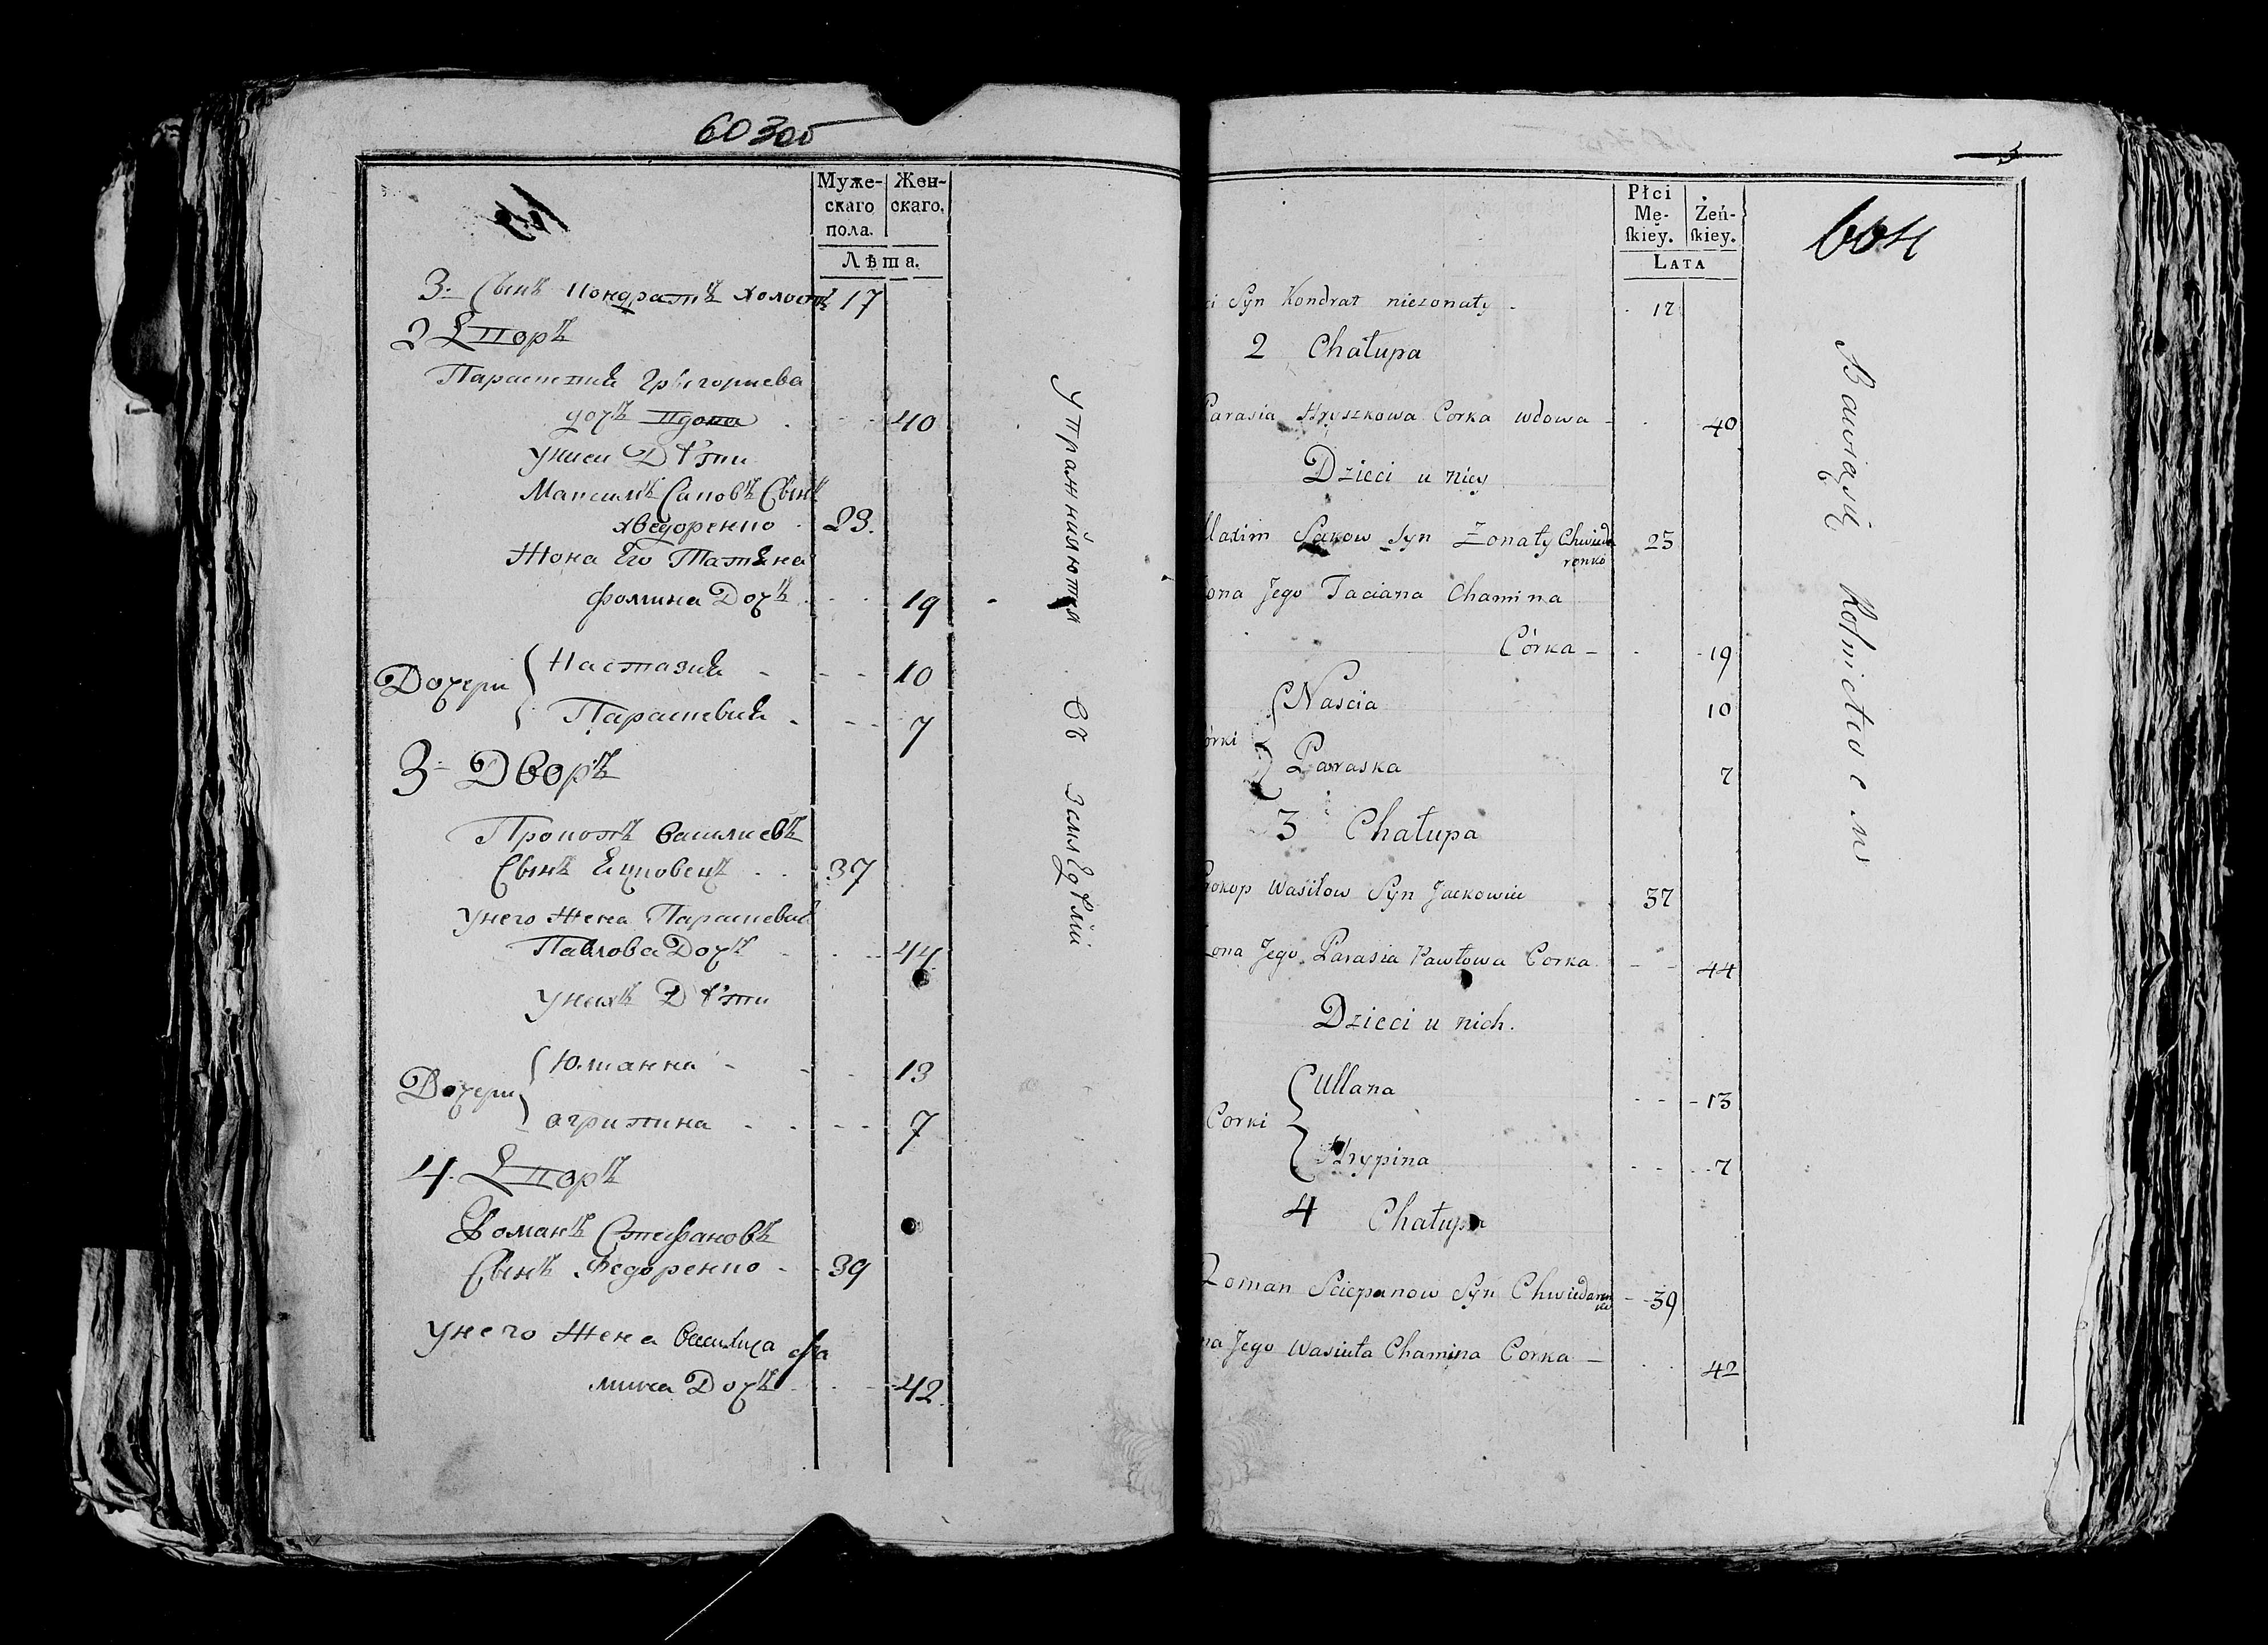 603об
Муже-
скаго
пола.
Жен-
скаго.
Лѣта.
3. Сынъ Кондратъ холостъ 17
2 Дворъ
Параскевiя Григориева
дочъ вдова 40
У нея Дѣти
Максимъ Саковъ Сынъ
Хведоренко 23.
Жона Его Татяна
Фомина Дочъ 19
Дочери
Настазия 10
Параскевия 7
3 Дворъ
Прокопъ Василиевъ
Сынъ Яцковецъ 37
У него Жена Параскевия
Павлова Дочъ 44
У нихъ Дѣти
Дочери
Юлианна 13
Агрипина 7
4. Дворъ
Романъ Стефановъ
Сынъ Федоренко 39
У него Жена Василиса Фо
мина Дочъ 42
Упражняются въ Земледѣлiи
604
Płci
Mę-
ſkiey.
Żeń-
ſkiey.
LATA
Syn Kondrat nieżonaty 17
2 Chałupa
Parasia Hryszkowa Corka wdowa 40
Dzieci u niey
Maxim Sakow Syn Żonaty Chwiedo
ronko 23
Żona Jego Taciana Chamina
Córka 19
Córki
Nascia 10
Paraska 7
3 Chałupa
Prokop Wasilow Syn Jackowiec 37
Żona Jego Parasia Pawłowa Corka 44
Dzieci u nich.
Corki
Ullana 13
Hrypina 7
4 Chałupa
Roman Sciepanow Syn Chwiedoren
ko 39
Żona Jego Wasiuta Chamina Corka 42
Bawią się Rolnictwem